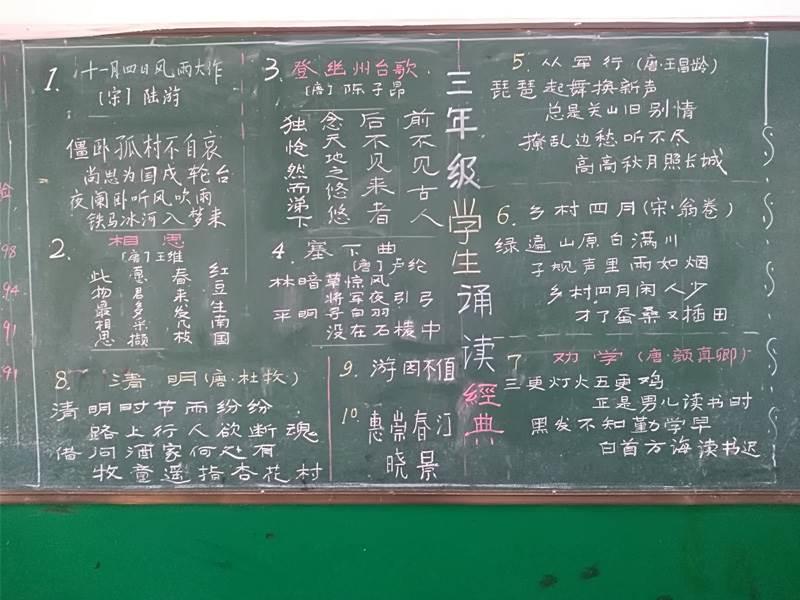 三年级学生诵读經典
1. 十一月四日风雨大作
[宋] 陆游
僵卧孤村不自哀
尚思为国戍轮台
夜阑卧听风吹雨
铁马冰河入梦来
2. 相思
[唐] 王维
红豆生南国
春来发几枝
愿君多采撷
此物最相思
3. 登幽州台歌
[唐] 陈子昂
前不见古人
后不见来者
念天地之悠悠
独怆然而涕下
4. 塞下曲
[唐] 卢纶
林暗草惊风
将军夜引弓
平明寻白羽
没在石棱中
5. 从军行 (唐·王昌龄)
琵琶起舞换新声
总是关山旧别情
撩乱边愁听不尽
高高秋月照长城
6. 乡村四月 (宋·翁卷)
绿遍山原白满川
子规声里雨如烟
乡村四月闲人少
才了蚕桑又插田
7 劝学 (唐·颜真卿)
三更灯火五更鸡
正是男儿读书时
黑发不知勤学早
白首方悔读书迟
8. 清明 (唐·杜牧)
清明时节雨纷纷
路上行人欲断魂
借问酒家何处有
牧童遥指杏花村
9. 游园不值
10. 惠崇春江
晓景
98
94
91
91